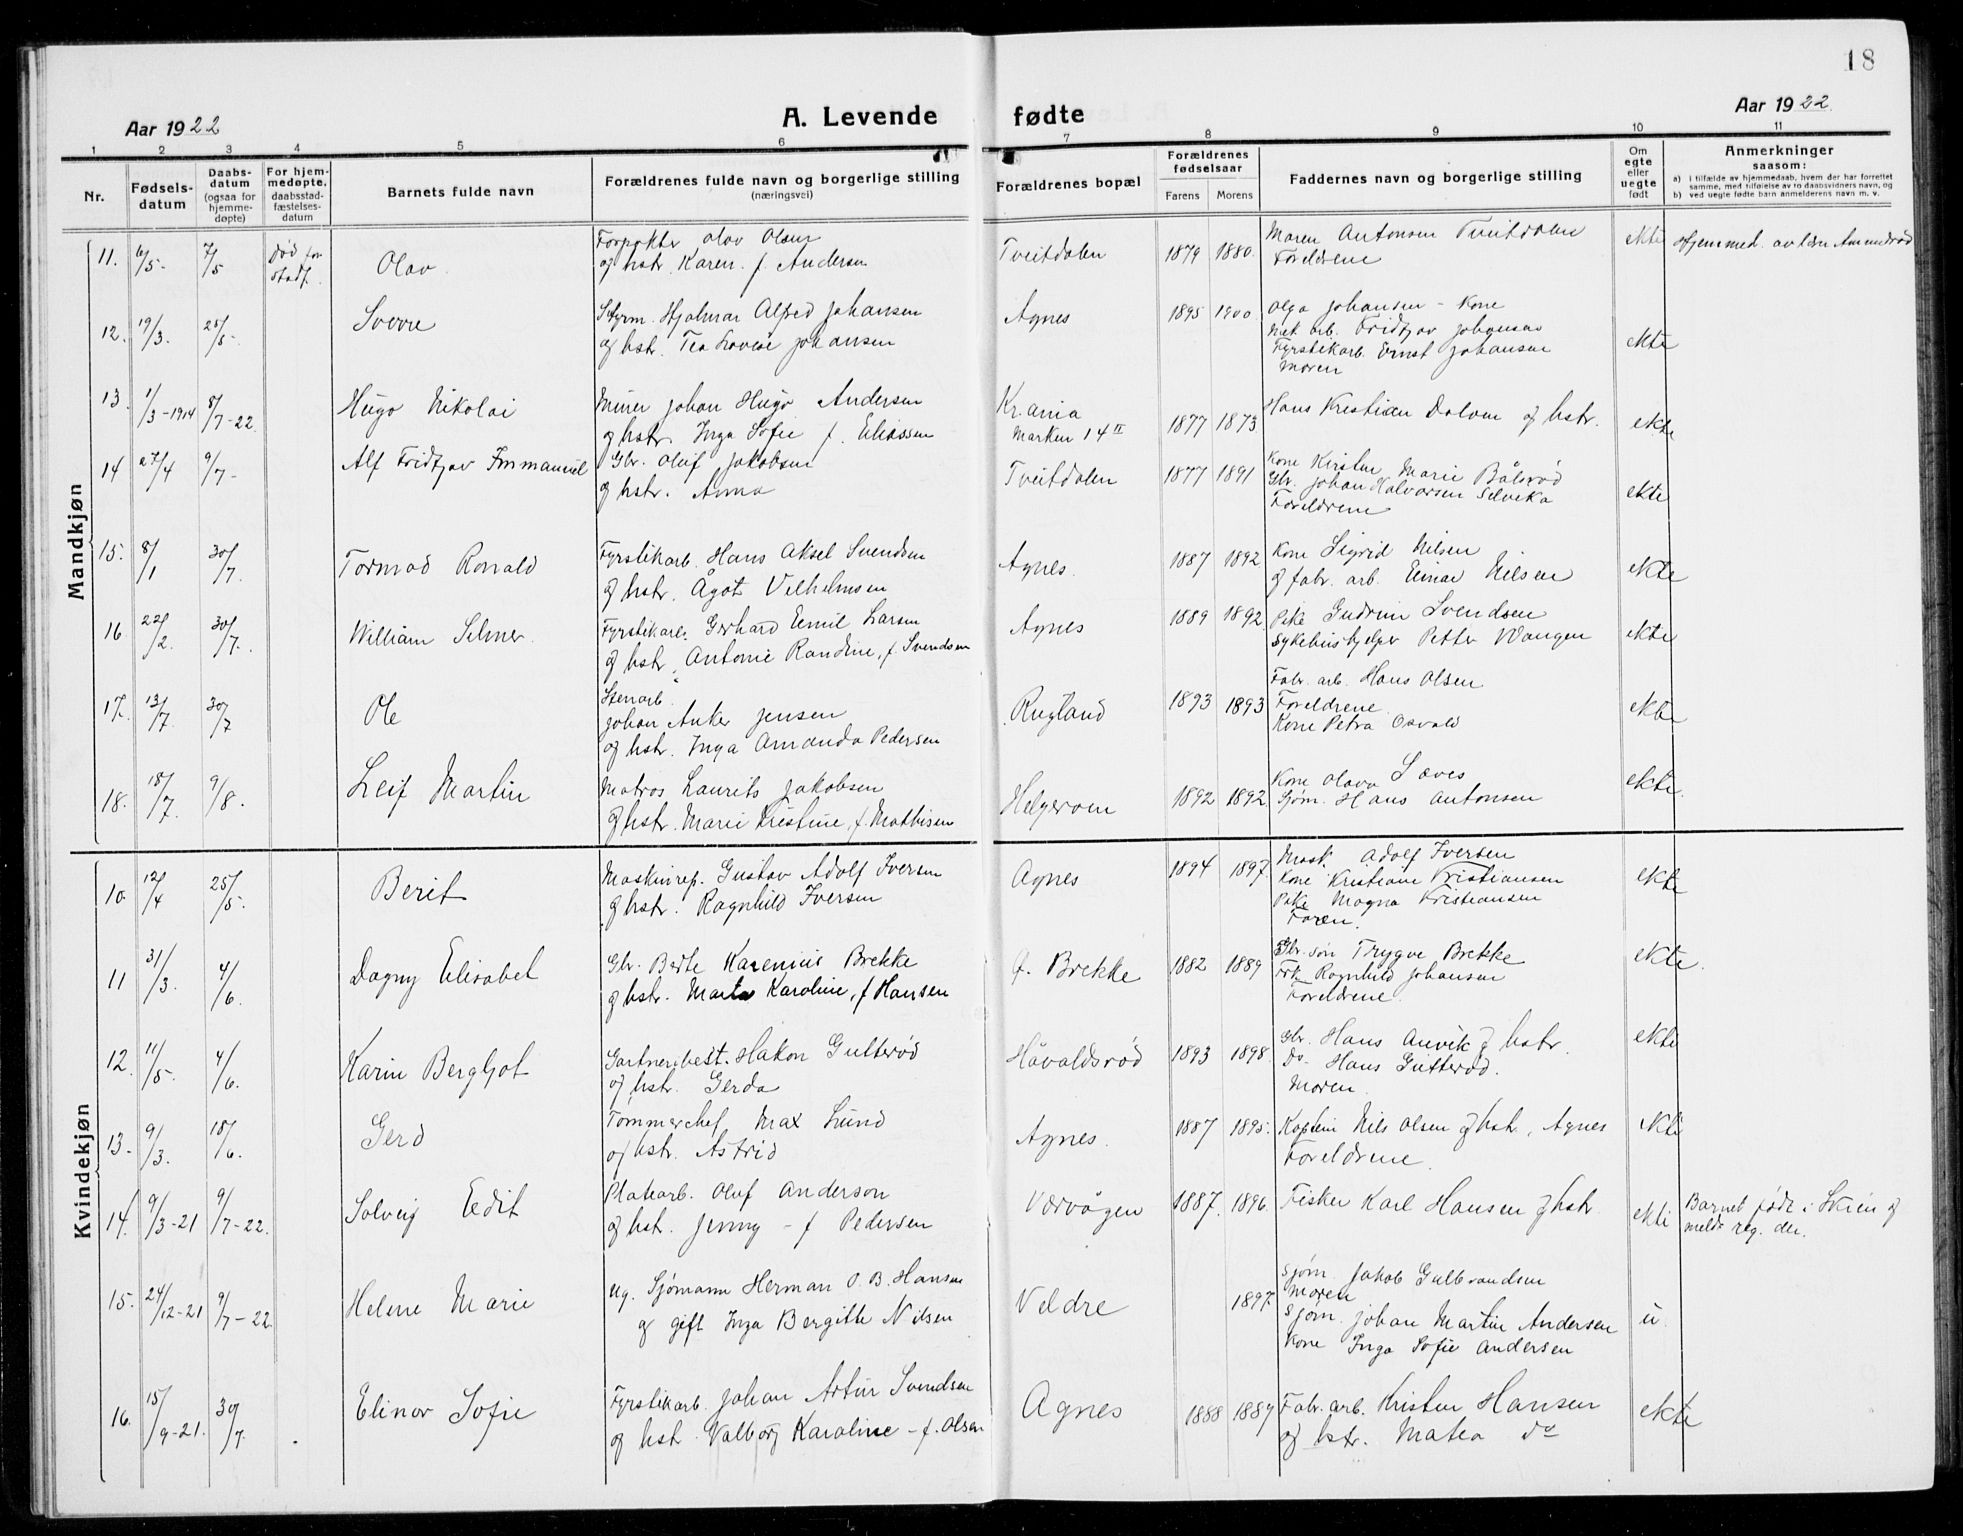 18
Aar 1922
A. Levende fødte
Aar 1922
1 2 3 4 5 6 7 8 9 10 11
Nr.
Fødsels-
datum
Daabs-
datum
(ogsaa for
hjemme-
døpte)
For hjem-
medøpte.
daabsstad-
fæstelses-
datum
Barnets fulde navn
Forældrenes fulde navn og borgerlige stilling
(næringsvei)
Forældrenes bopæl
Forældrenes
fødselsaar
Farens Morens
Faddernes navn og borgerlige stilling
Om
egte
eller
uegte
født
Anmerkninger
saasom:
a) i tilfælde av hjemmedaab, hvem der har forrettet
samme, med tilføielse av to daabsvidners navn, og
b) ved uegte fødte barn anmelderens navn m. v.
Mandkjøn
11. 6/5- 7/5 Død før
stadf.
Olav
Forpakter Olav Olsen
og hstr. Karen f. Andersen
Tveitdalen 1879 1880.
Maren Antonsen Tveitdalen
Foreldrene
ekte
Hjemmed. av
12. 19/3. 25/5-
Sverre
Styrm. Hjalmar Alfred Johansen
og hstr. Tea Lovise Johansen
Agnes 1895 1900.
Olga Johansen - Kone
Mek. arb. Fridtjov Johansen
Fyrstikarb. Ernst Johansen
Moren
ekte
13. 1/3-1914 8/7-22
Hugo Nikolai
Murer Johan Hugo Andersen
og hstr. Inga Sofie f. Eliassen
Kr.ania
Marken 14 II
1877 1873.
Hans Kristian Dalum og hstr.
ekte
14 27/4 9/7-
Alf Fridtjov Immanuel
Gbr. Oluf Jakobsen
og hstr. Anna
Tveitdalen 1877 1891
Kone Kirsten Marie Bålsrød
Gbr. Johan Halvorsen Selvika
Foreldrene
ekte
15. 8/1 30/7.
Tormod Ronald
Fyrstikarb. Hans Aksel Svendsen
og hstr. Ågot Vilhelmsen
Agnes. 1887 1892
Kone Sigrid Nilsen
og fabr. arb. Einar Nilsen
ekte
16 22/2. 30/7.
William Selmer.
Fyrstikarb. Gerhard Emil Larsen
og hstr. Antonie Randine, f. Svendsen
Agnes 1889 1892.
Pike Gudrun Svendsen
Sykehushjelper Petter Wangen
ekte
17. 13/7. 30/7
Ole
Stenarb.
Johan Anker Jensen
og hstr. Inga Amanda Pedersen
Rugland 1893 1893
Fabr. arb. Hans Olsen
Foreldrene
Kone Petra Osvald
ekte
18. 18/7. 9/8.
Leif Martin
Matros Laurits Jakobsen
og hstr. Marie Kristine, f. Mathisen
Helgeroen 1892 1892
Kone Olava
Sjøm. Hans Antonsen
ekte.
Kvindekjøn
10. 12/4 25/5.
Berit
Maskinrep. Gustav Adolf Iversen
og hstr. Ragnhild Iversen
Agnes 1894 1897.
Mask. Adolf Iversen
Kone Kristiane Kristiansen
Pike Magna Kristiansen
Faren.
ekte
11 31/3. 4/6.
Dagny Elisabet
Gbr. Berte Karenius Brekke
og hstr. Marta Karoline, f Hansen
g. Brekke 1882 1889
Gbr. søn Trygve Brekke
Frk Ragnhild Johansen
Foreldrene.
ekte.
12. 11/5. 4/6.
Karin Bergljot
Gartnerbest. Håkon Gutterød
og hstr. Gerda
Håvaldsrød 1893 1898.
Gbr. Hans Anvik og hstr.
Do. Hans Gutterød.
Moren.
ekte
13. 9/3. 18/6.
Gerd
Tømmerchef Max Lund
og hstr. Astrid
Agnes. 1887 1895.
Kaptein Nils Olsen og hstr, Agnes
Foreldrene.
ekte
14. 9/3-21 9/7-22.
Solveig Edit
Platearb. Oluf Anderson
og hstr. Jenny - f Pedersen
Værvågen 1887. 1896.
Fisker Karl Hansen og hstr.
ekte
Barnet født i Skien og
meldt reg. der.
15. 24/12-21 9/7-22
Helene Marie
Ug. Sjømann Herman O. B. Hansen
og gift Inga Bergitte Nilsen
Veldre 1897.
Sjøm. Jakob Gulbrandsen
Moren
Sjøm. Johan Martin Andersen
Kone Inga Sofie Andersen
u.
16. 15/9-21. 30/7.
Elinor Sofie
Fyrstikarb. Johan Artur Svendsen
og hstr. Valborg Karoline - f. Olsen
Agnes 1888 1889
Fabr. arb. Kristen Hansen
og hstr. Matea do
ekte